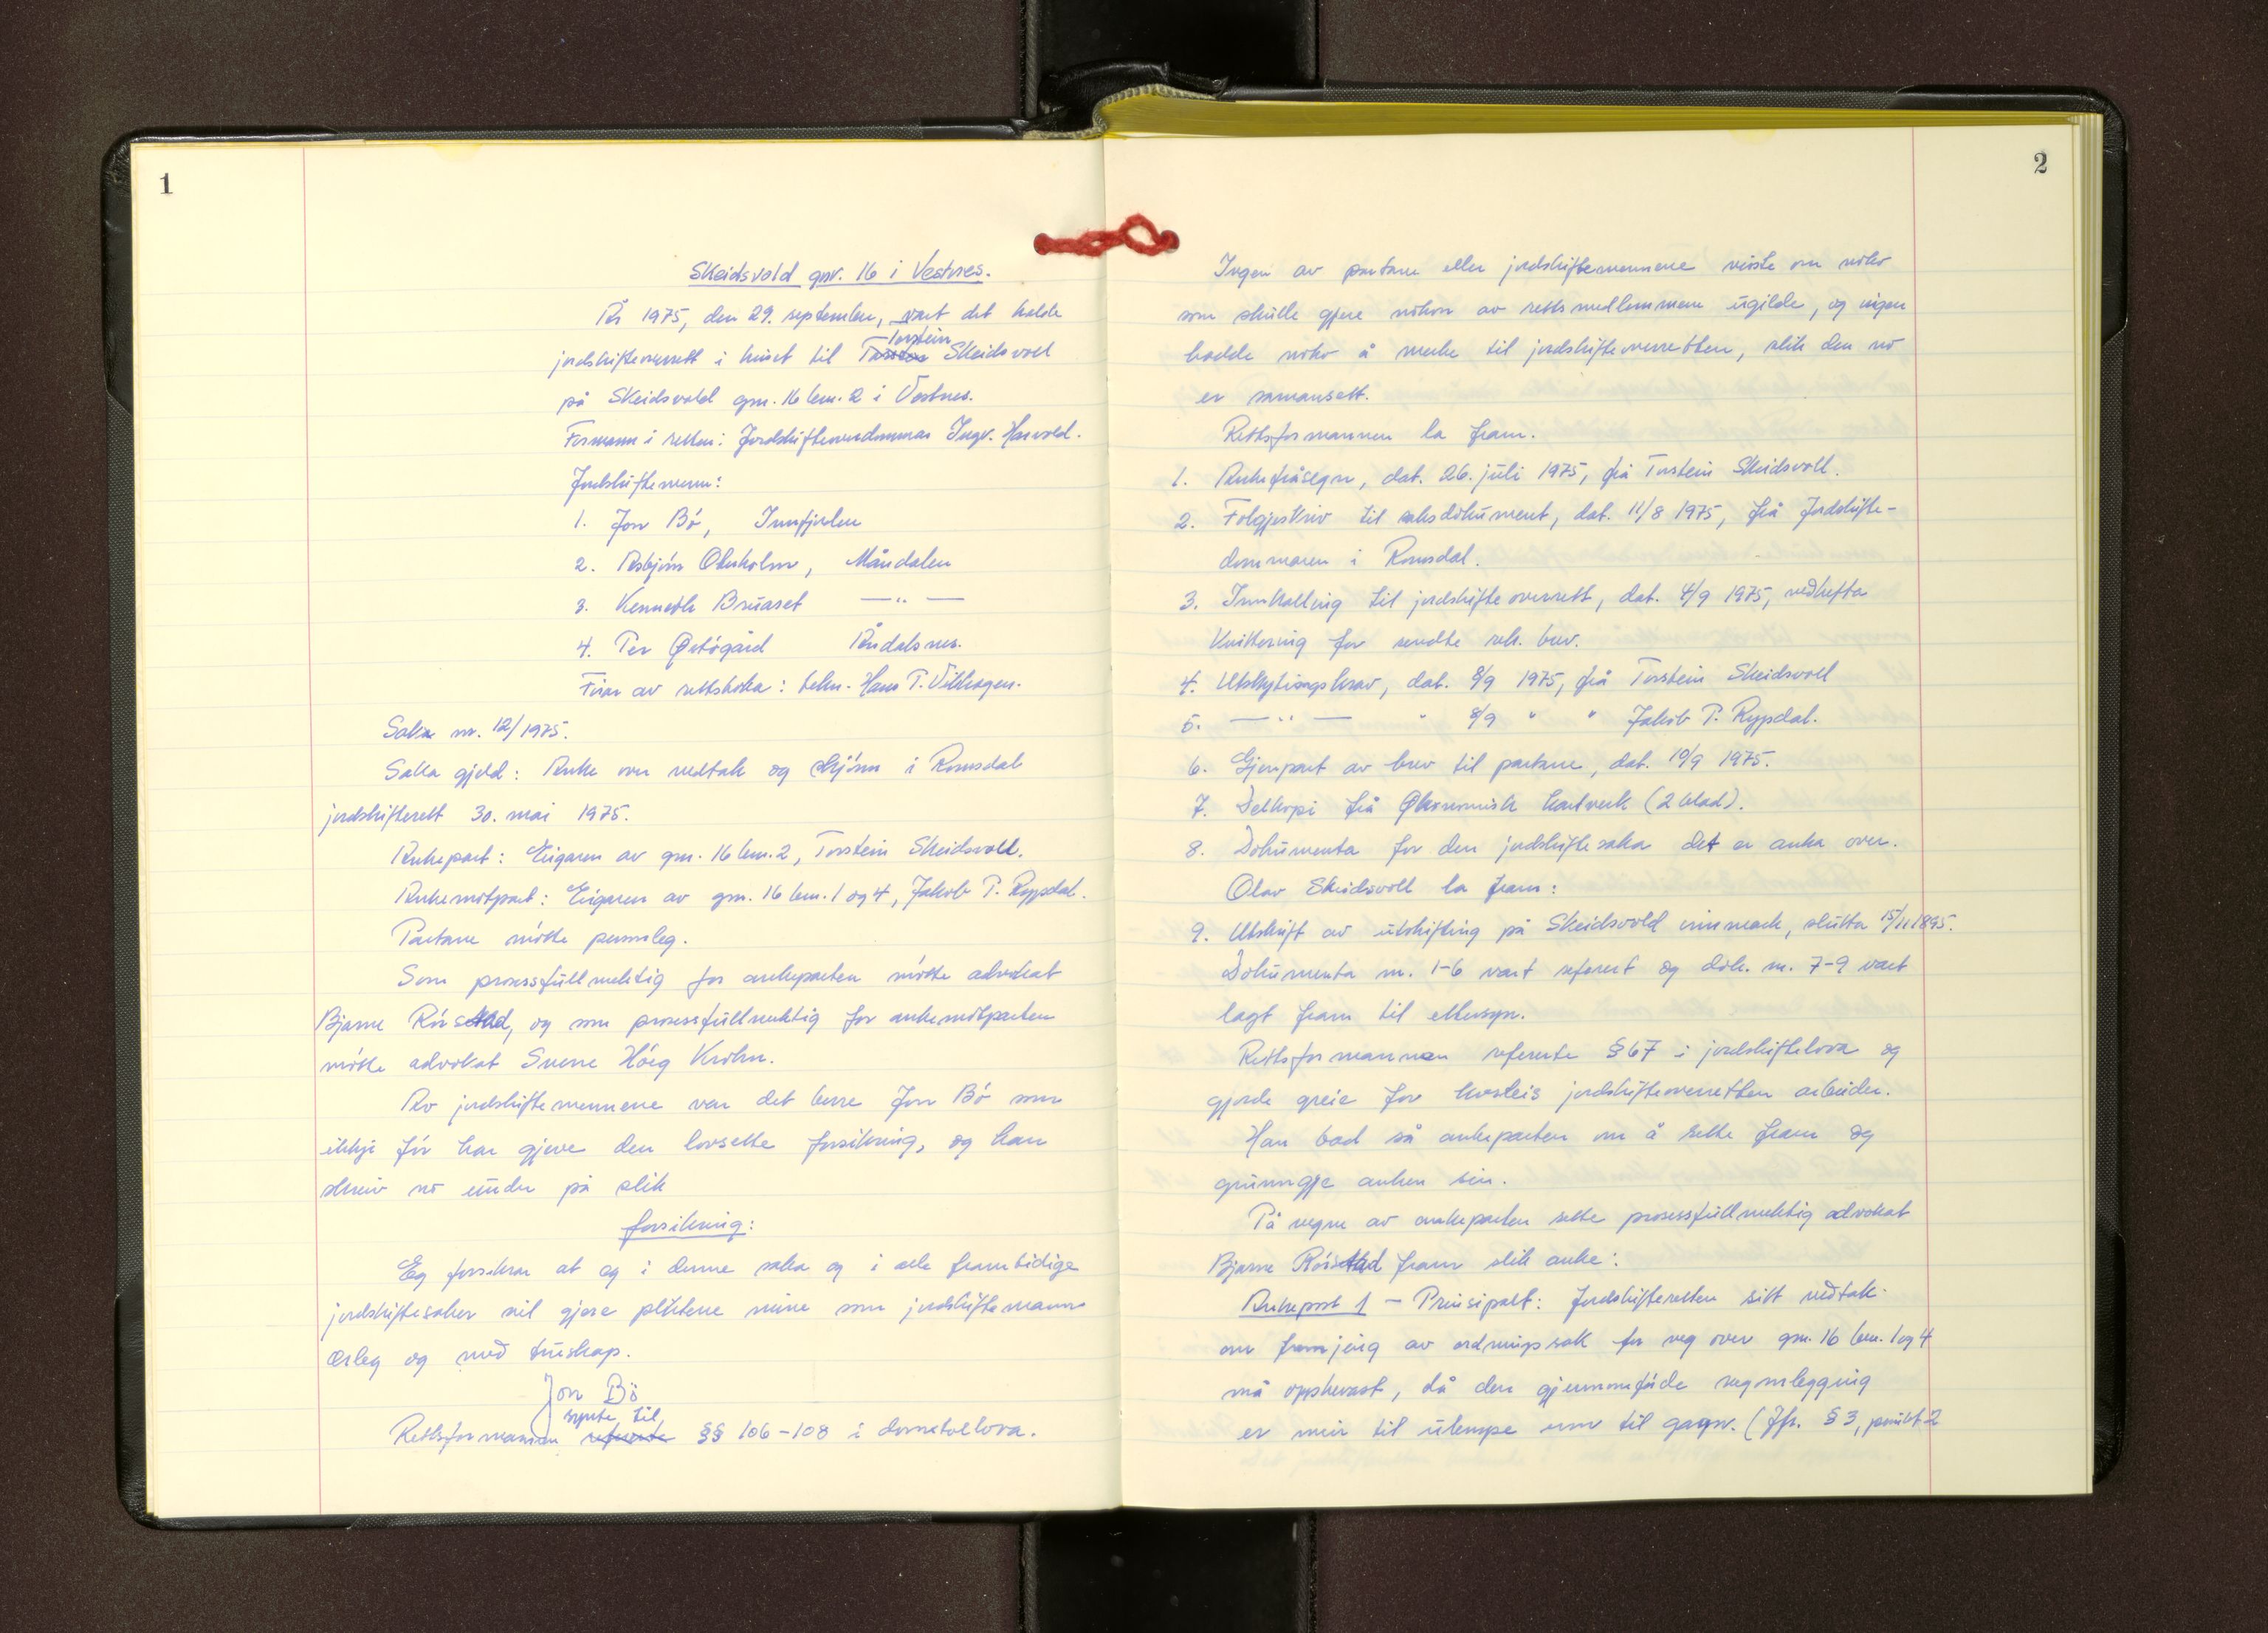 1
Skeidsvold gnr. 16 i Vestnes.
År 1975, den 29. september, vart det halde
jordskifteoverrett i huset til Torstein Skeidsvoll
på Skeidsvold gnr. 16 bnr. 2 i Vestnes.
Formann i retten: Jordskifteoverdommar Ingv. Harvold.
Jordskiftemenn:
1. Jon Bö, Innfjorden
2. Asbjörn Okerholm, Måndalen
3. Kenneth Brüaset —"—
4. Per Östögård Åndalsnes.
Förar av rettsboka: tekn. Hans P. Vikhagen.
Sak nr. 12/1975.
Saka gjeld: Anke over vedtak og skjönn i Romsdal
jordskifterett 30. mai 1975.
Ankepart: Eigaren av gnr. 16 bnr. 2, Torstein Skeidsvoll.
Ankemotpart: Eigaren av gnr. 16 bnr. 1 og 4, Jakob P. Rypdal.
Partane mötte personleg.
Som prosessfullmektig for ankeparten mötte advokat
Bjarne Rörstad, og som prosessfullmektig for ankemotparten
mötte advokat Sverre Höeg Krohn.
Av jordskiftemennene var det berre Jon Bö som
ikkje för har gjeve den lovsette forsikring, og han
skreiv no under på slik
forsikring:
Eg forsikrar at eg i denne saka og i alle framtidige
jordskiftesaker vil gjere pliktene mine som jordskiftemann
ærleg og med truskap.
Jon Bö
synte til
Rettsformannen refererte §§ 106-108 i domstollova.
2
Ingen av partane eller jordskiftemennene visste om noko
som skulle gjere nokon av rettsmedlemmene ugilde, og ingen
hadde noko å merke til jordskifteoverretten, slik den no
er samansett.
Rettsformannen la fram.
1. Ankefråsegn, dat. 26. juli 1975, frå Torstein Skeidsvoll.
2. Fölgjeskriv til saksdokument, dat. 11/8 1975, frå Jordskifte-
dommaren i Romsdal.
3. Innkalling til jordskifteoverrett, dat. 4/9 1975, vedhefta
kvittering for sendte rek. brev.
4. Utskytingskrav, dat. 8/9 1975, frå Torstein Skeidsvoll
5. —"— " 8/9 " " Jakob P. Rypdal.
6. Gjenpart av brev til partane, dat. 10/9 1975.
7. Delkopi frå Økonomisk kartverk (2 blad).
8. Dokumenta for den jordskiftesaka det er anka over.
Olav Skeidsvoll la fram:
9. Utskrift av utskifting på Skeidsvold innmark, slutta 15/11 1895.
Dokumenta nr. 1-6 vart referert og dok. nr. 7-9 vart
lagt fram til ettersyn.
Rettsformannen refererte § 67 i jordskiftelova og
gjorde greie for korleis jordskifteoverretten arbeider.
Han bad så ankeparten om å sette fram og
grunngje anken sin.
På vegne av ankeparten sette prosessfullmektig advokat
Bjarne Rörstad fram slik anke:
Ankepost 1 – Prinsipalt: Jordskifteretten sitt vedtak
om fremjing av ordningssak for veg over gnr. 16 bnr. 1 og 4
må opphevast, då den gjennomförde vegomlegging
er meir til ulempe enn til gagn. (Jfr. § 3, punkt 2